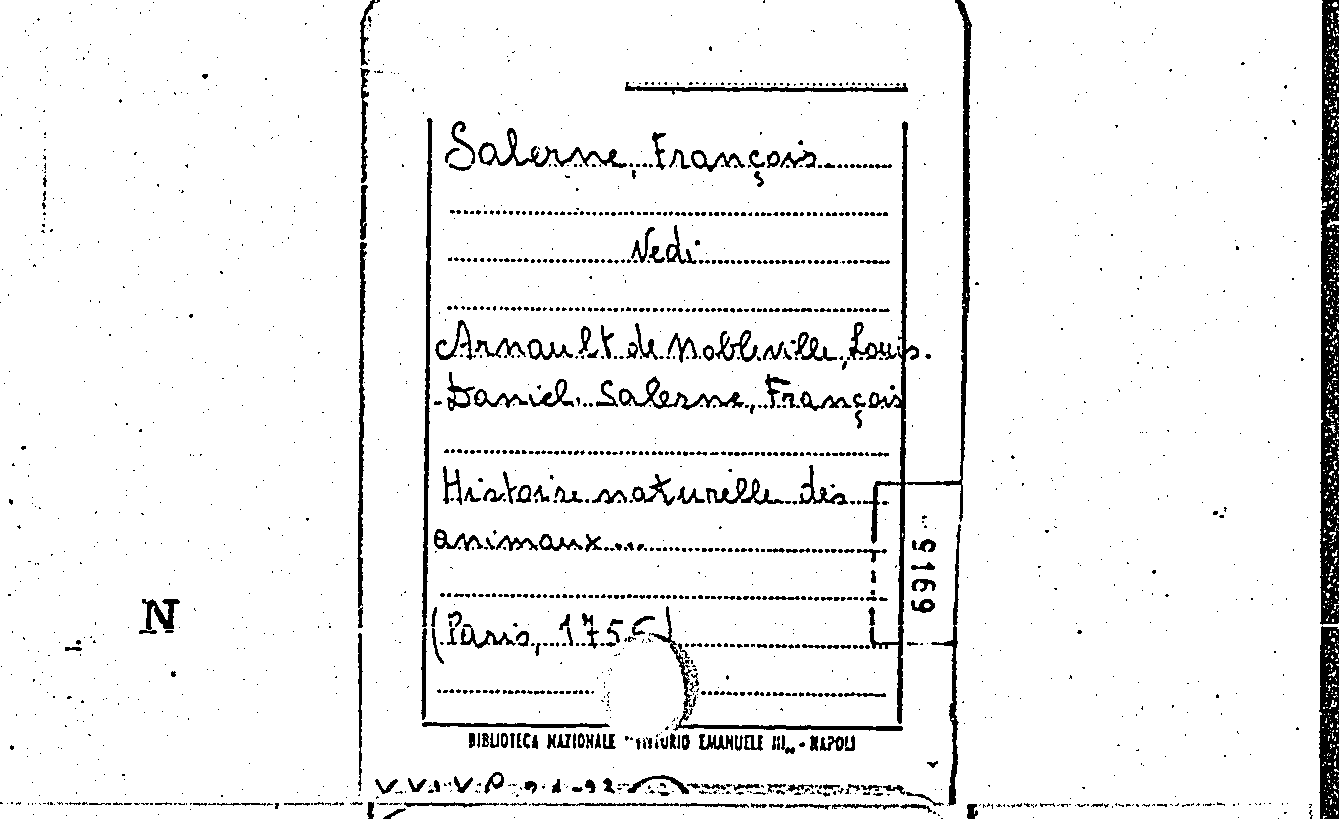 Salerne, François
Vedi
Arnault de Nobleville, Louis-
-Daniel. Salerne, François
Histoire naturelle des
animaux...
(Paris, 1756)
9919
N
BIBLIOTECA NAZIONALE "VITTORIO EMANUELE III„ - NAPOLI